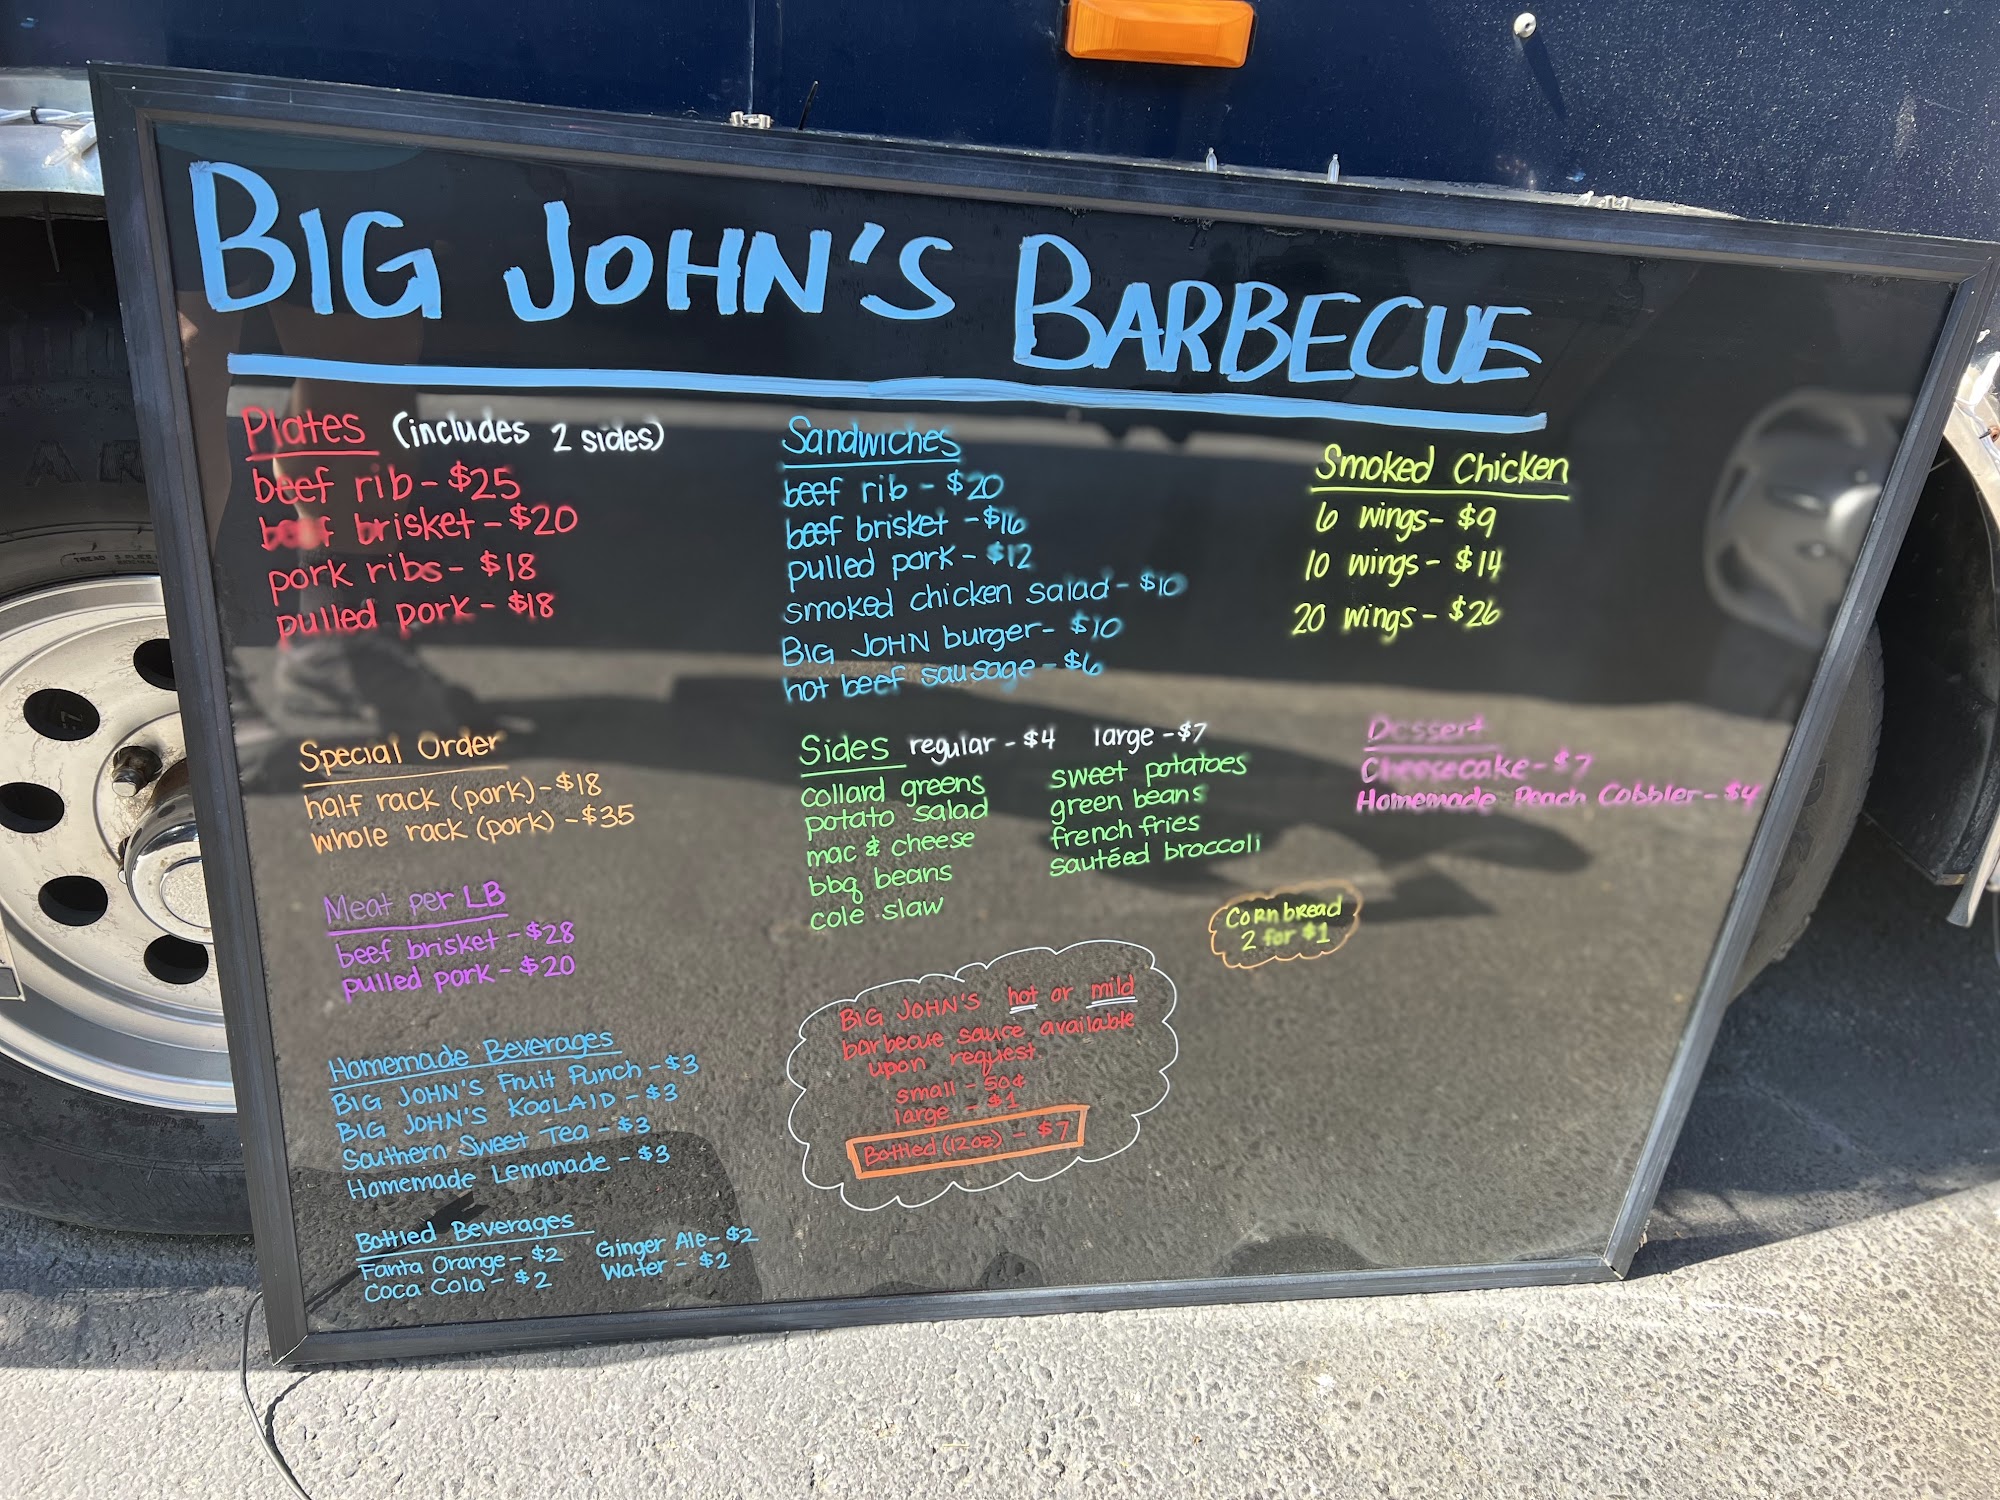 BIG JOHN'S BARBECUE
Plates (includes 2 sides)
beef rib - $25
beef brisket - $20
pork ribs - $18
pulled pork - $18
Sandwiches
beef rib - $20
beef brisket - $16
pulled pork - $12
smoked chicken salad - $10
BIG JOHN burger - $10
hot beef sausage - $6
Smoked Chicken
6 wings - $9
10 wings - $14
20 wings - $26
Special Order
half rack (pork) - $18
whole rack (pork) - $35
Sides regular - $4 large - $7
collard greens
potato salad
mac & cheese
bbq beans
cole slaw
sweet potatoes
green beans
french fries
sautéed broccoli
Dessert
Cheesecake - $7
Homemade Peach Cobbler - $4
Cornbread
2 for $1
Meat per LB
beef brisket - $28
pulled pork - $20
BIG JOHN'S hot or mild
barbecue sauce available
upon request.
small - 50¢
large - $1
Bottled (12oz) - $7
Homemade Beverages
BIG JOHN'S Fruit Punch - $3
BIG JOHN'S KOOLAID - $3
Southern Sweet Tea - $3
Homemade Lemonade - $3
Bottled Beverages
Fanta Orange - $2
Coca Cola - $2
Ginger Ale - $2
Water - $2